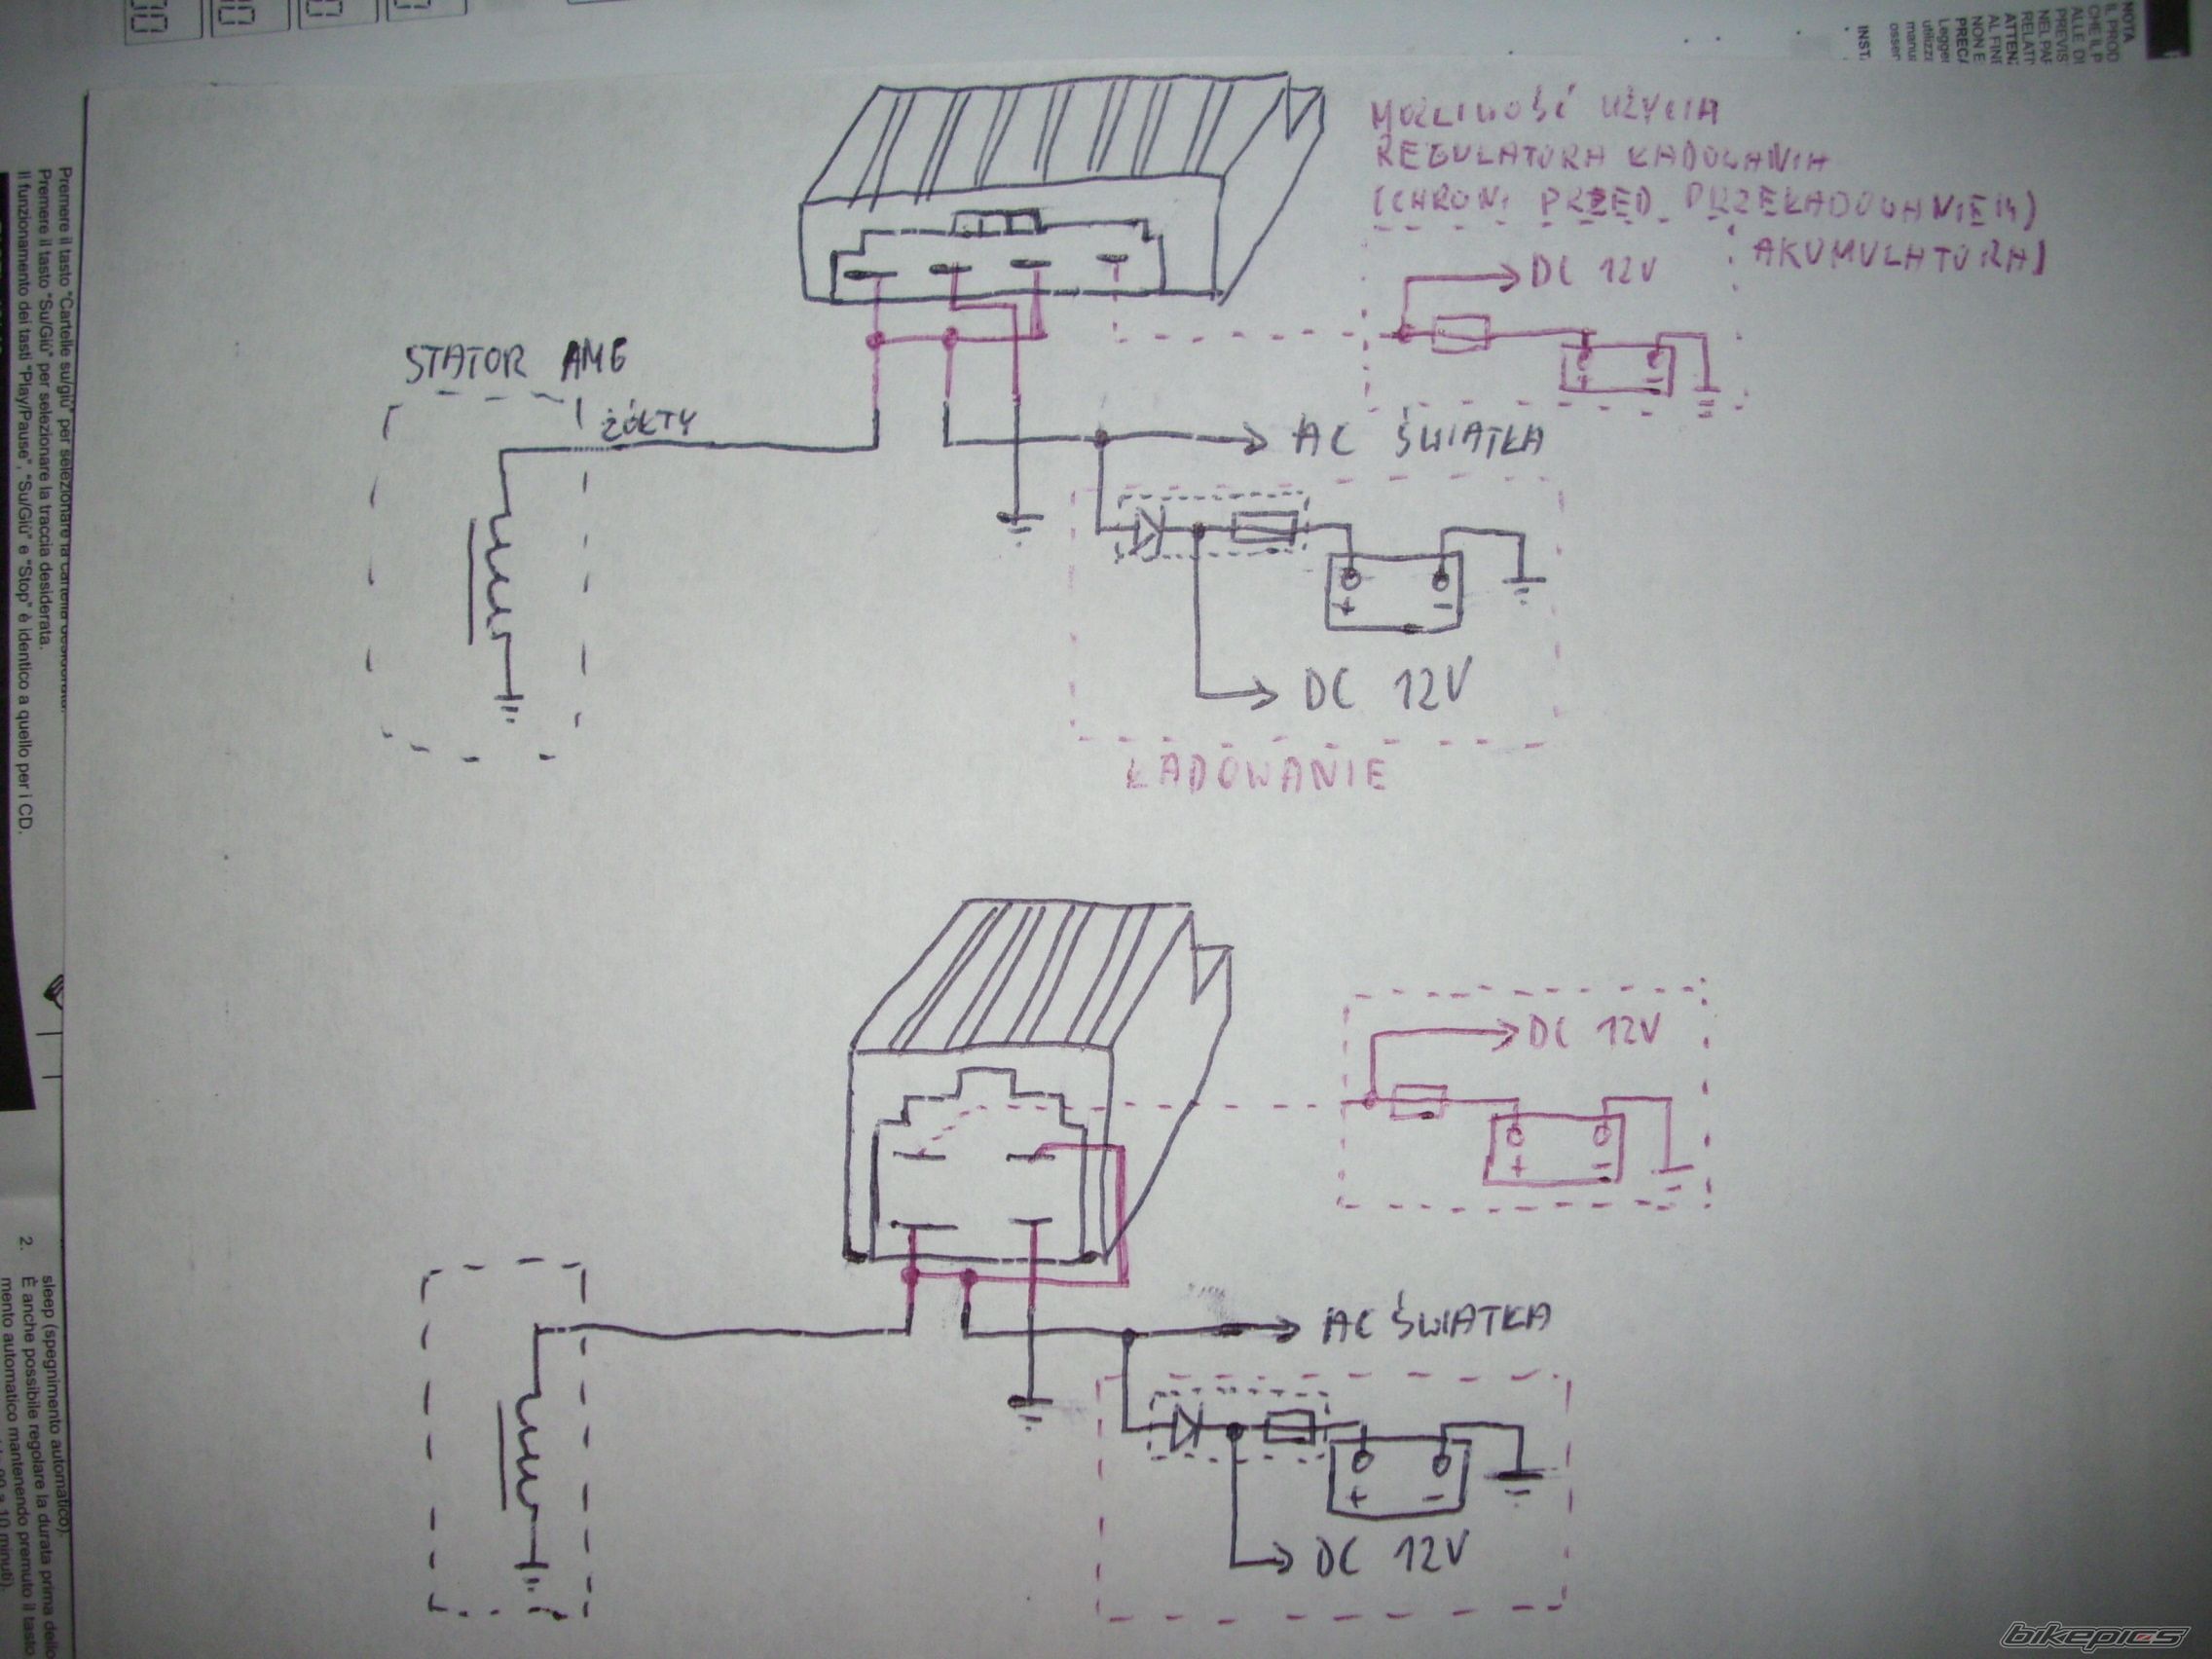 NOTA
IL PROD
CHE IL P
ALLE DI
PREVIS
NEL PAR
RELATI
ATTEN
AL FINE
NON E
PRECA
Legger
utilizz
manu
osser
INST
Premere il tasto "Cartelle su/giù" per selezionare la cartella desiderata.
Premere il tasto "Su/Giù" per selezionare la traccia desiderata.
Il funzionamento dei tasti "Play/Pause", "Su/Giù" e "Stop" è identico a quello per i CD.
MOŻLIWOŚĆ UŻYCIA
REGULATORA ŁADOWANIA
(CHRONI PRZED PRZEŁADOWANIEM)
AKUMULATORA)
DC 12V
+ -
STATOR AM6
ŻÓŁTY
AC ŚWIATŁA
+ -
DC 12V
ŁADOWANIE
DC 12V
+ -
AC ŚWIATŁA
+ -
DC 12V
2.
sleep (spegnimento automatico).
È anche possibile regolare la durata prima dello
mento automatico mantenendo premuto il tasto
bikepics